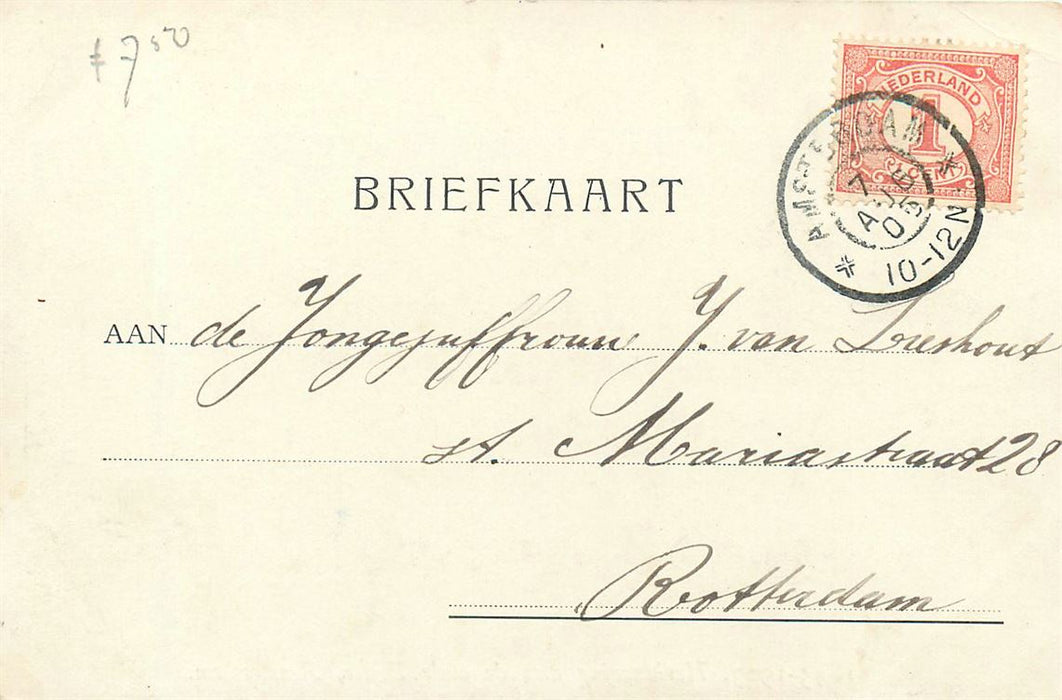 f 7 50
NEDERLAND
1
CENT
AMSTERDAM
7 AUG 05
10-12N
BRIEFKAART
AAN de Jongejuffrouw J. van Lieshout
st. Mariastraat 28
Rotterdam